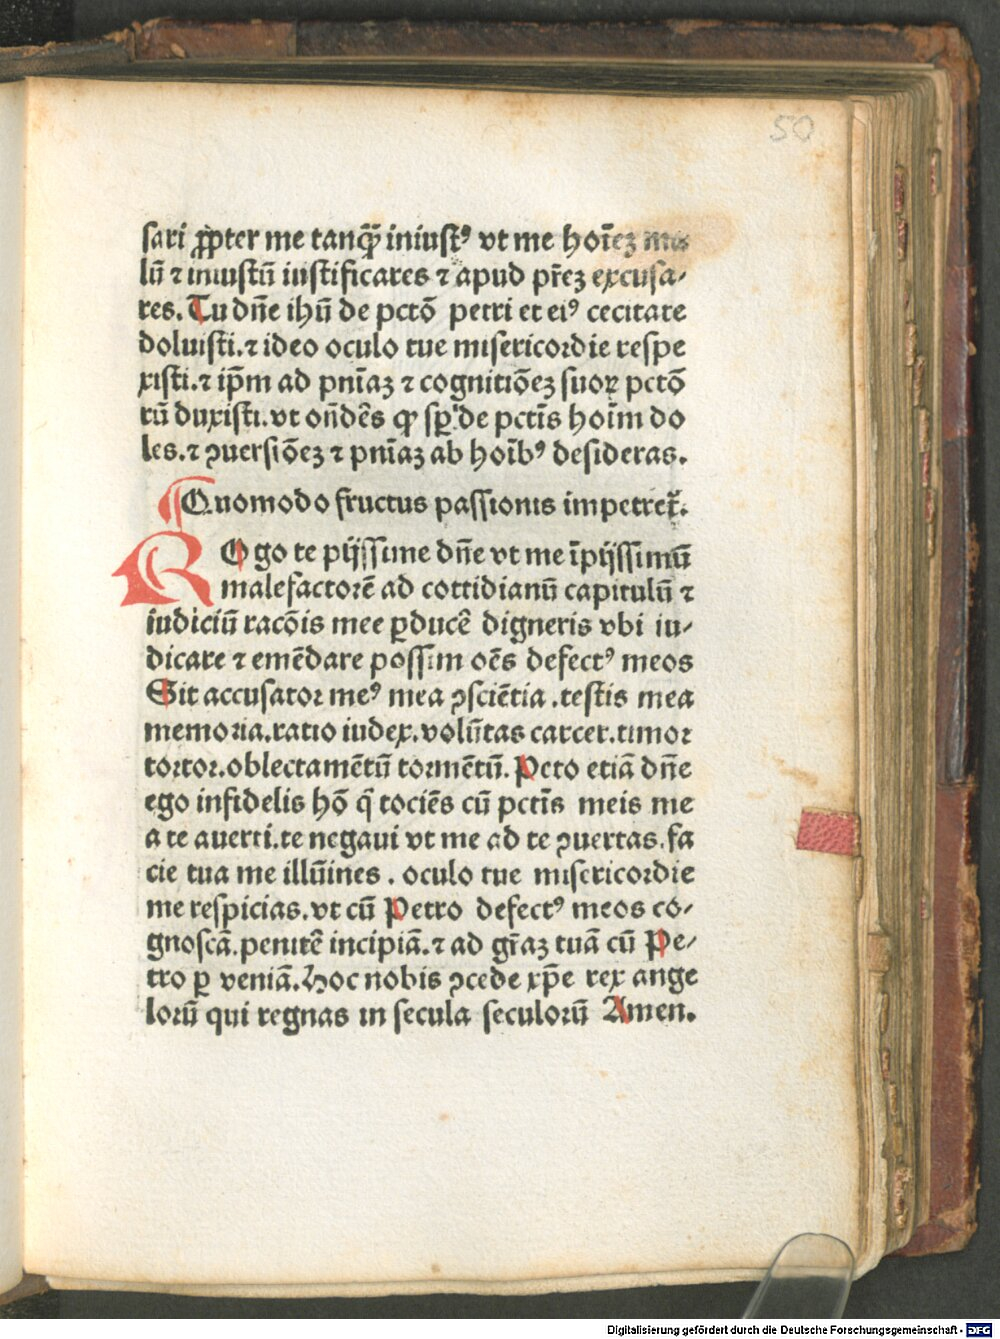 50
sari ꝓpter me tanꝙ̃ iniustꝰ vt me hoı̄eꝫ ma
lū ⁊ iniustū iustificares ⁊ apud pr̄eꝫ excusa⸗
res. Tu dn̄e ihū de pctō petri et eiꝰ cecitate
doluisti.⁊ ideo oculo tue misericordie respe
xisti.⁊ ip̄m ad pnīaꝫ ⁊ cognitiōeꝫ suoꝝ pctō
rū duxisti.vt on̄dēs ꝙ sꝑ de pctīs hoīm do
les.⁊ ꝯuersiōeꝫ ⁊ pnīaꝫ ab hoībꝰ desideras.
Quomodo fructus passionis impetret᷑.
ROgo te pijssime dn̄e vt me īpijssimū
malefactorē ad cottidianū capitulū ⁊
iudiciū racōis mee ꝑducē digneris vbi iu⸗
dicare ⁊ emēdare possim oēs defectꝰ meos
Sit accusator meꝰ mea ꝯsciētia .testis mea
memoria.ratio iudex.volūtas carcer.timor
tortor.oblectamētū tormētū. Peto etiā dn̄e
ego infidelis hō q̄ tociēs cū pctīs meis me
a te auerti.te negaui vt me ad te ꝯuertas.fa
cie tua me illūines . oculo tue misericordie
me respicias.vt cū Petro defectꝰ meos co⸗
gnoscā.penitē incipiā.⁊ ad gr̄aꝫ tuā cū Pe⸗
tro ꝑ veniā.Hoc nobis ꝯcede xp̄e rex ange
lorū qui regnas in secula seculorū Amen.
Digitalisierung gefördert durch die Deutsche Forschungsgemeinschaft - DFG